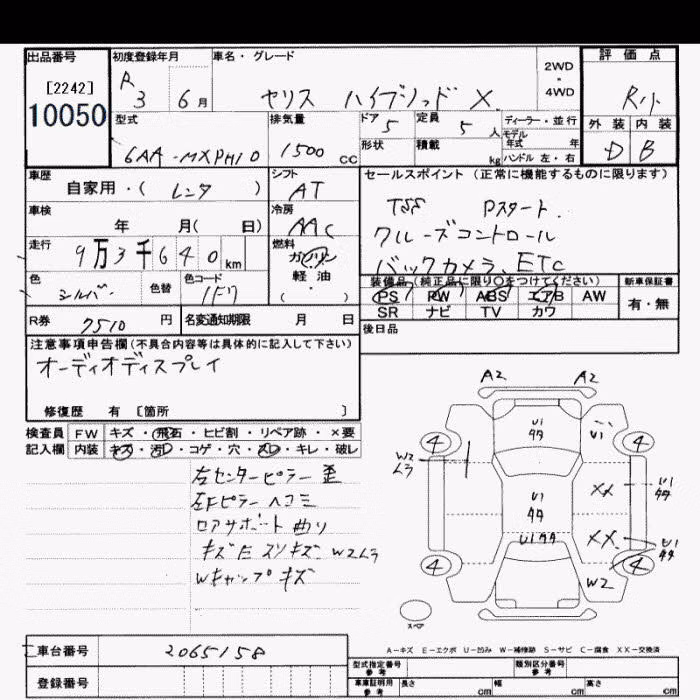 出品番号 初度登録年月 車名・グレード 評価点
[2242] R 3 6月 ヤリス ハイブリッド X 2WD・4WD R小
10050 型式 排気量 ドア 5 定員 5人 ディーラー・並行 外装 内装
6AA-MXPH10 1500cc 形状 積載 kg モデル年式 年 ハンドル左・右 D B
車歴 シフト セールスポイント(正常に機能するものに限ります)
自家用・(レンタ) AT TSS Pスタート.
車検 冷房 クルーズコントロール
年 月(日) AAC バックカメラ、ETC
走行 9万3千640km 燃料 ガソリン 軽油・(・)
装備品(純正品に限り○をつけてください) 新車保証書
色 シルバー 色替 色コード 1F7 PS PW ABS エアB AW 有・無
SR ナビ TV カワ
R券 7510円 名変通知期限 月 日 後日品
注意事項申告欄(不具合内容等は具体的に記入して下さい)
オーディオディスプレイ
修復歴 有 [箇所 ]
検査員 FW キズ・飛石・ヒビ割・リペア跡・×要
記入欄 内装 キズ・汚レ・コゲ・穴・スレ・キレ・破レ
左センターピラー歪
左Fピラーヘコミ
ロアサポート曲り
キズ凹スリキズ W2ムラ
Wキャップキズ
A2 A2
U1 タタ U1
4 4
W2 ムラ
XX U1 タタ
U1 タタ
U1タタ XX U1 タタ
4 4
W2
スペア
A-キズ E-エクボ U-凹み W-補修跡 S-サビ C-腐食 XX-交換済
車台番号 2065158
登録番号
型式指定番号 参考 類別区分番号 参考
車庫証明用 参考 長さ cm 幅 cm 高さ cm